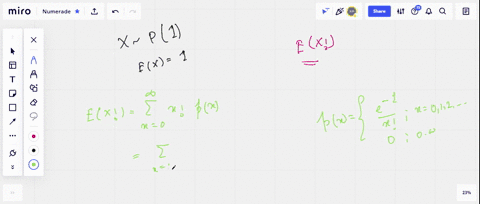 miro
Numerade
Share
X ~ P(1)
E(X) = 1
E(X!)
E(X!) = ∞ ∑ x=0 x! p(x)
= ∑
p(x) = { e^-1 / x! ; x = 0, 1, 2 ...
0 ; o.w
23%